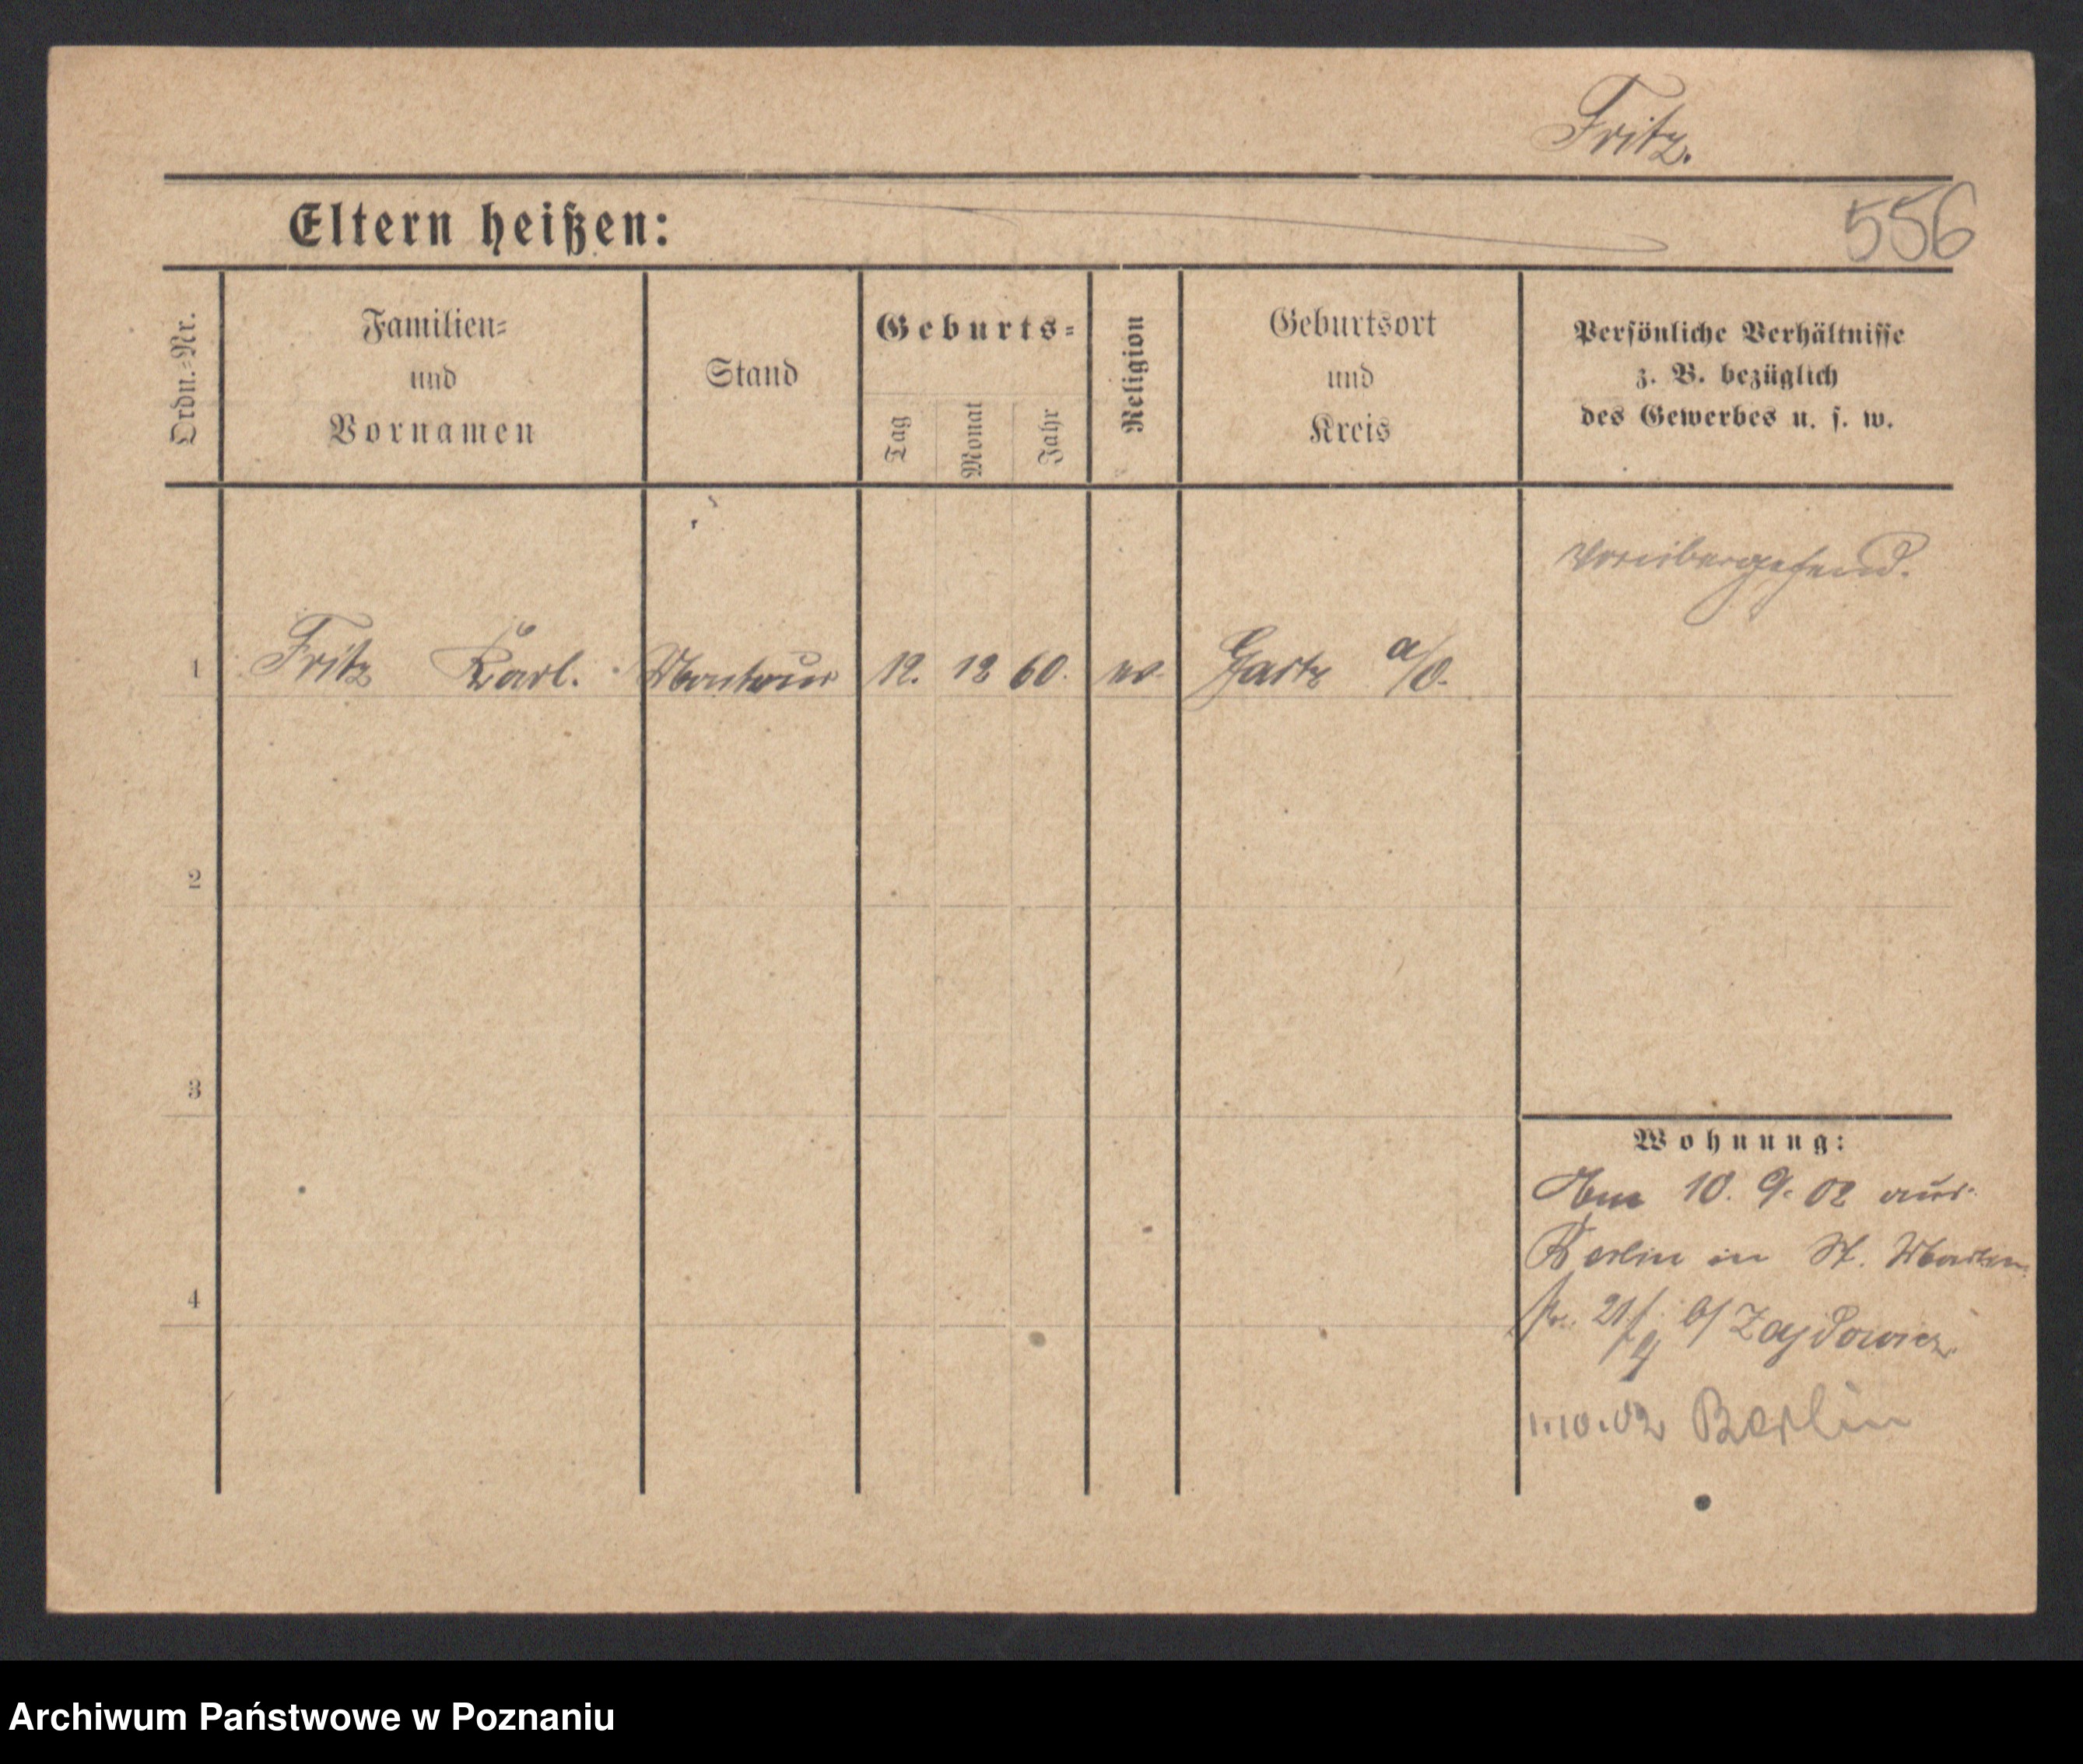 Fritz.
Eltern heißen:
556
Ordn.-Nr.
Familien-
und
Vornamen
Stand
Geburts-
Tag
Monat
Jahr
Religion
Geburtsort
und
Kreis
Persönliche Verhältnisse
z. B. bezüglich
des Gewerbes u. s. w.
vorübergehend.
1 Fritz Karl. Monteur 12. 12 60. ev. Gartz a/O.
2
3
4
Wohnung:
Am 10. 9. 02 aus
Berlin in St. Martin
str. 21 b/ Zaydowicz
1.10.02 Berlin
Archiwum Państwowe w Poznaniu